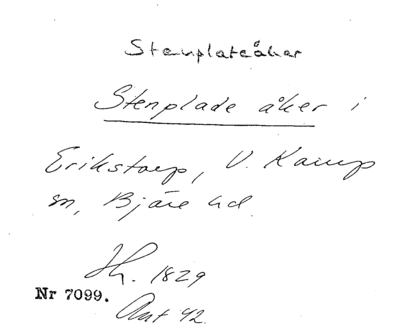 Stenplateåker
Stenplade åker i
Erikstorp, V. Karup
sn, Bjäre hd.
Jh. 1829
Nr 7099.
Akt 42.